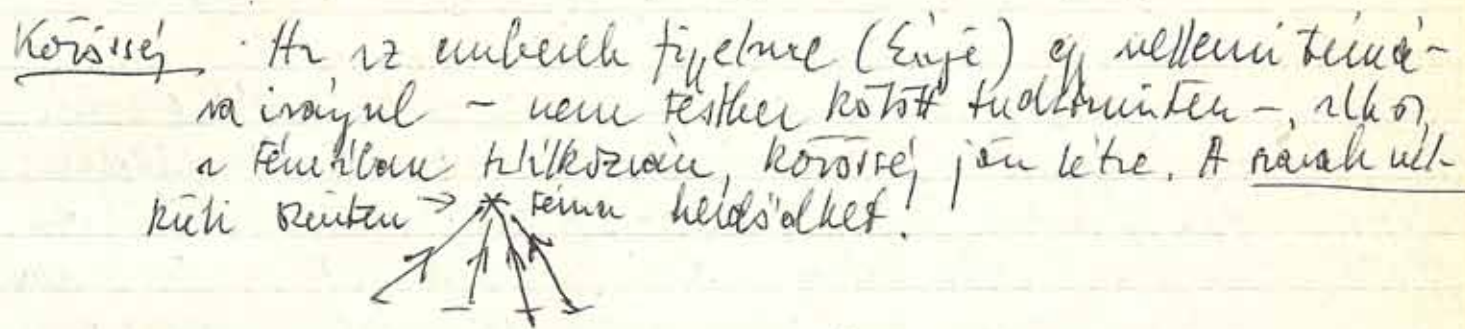 Közösség Ha az emberek figyelme (Énje) egy szellemi témá-
ra irányul – nem testhez kötött tudatszinten –, akkor,
a témában találkozván, közösség jön létre. A szavak nél-
küli szinten → téma